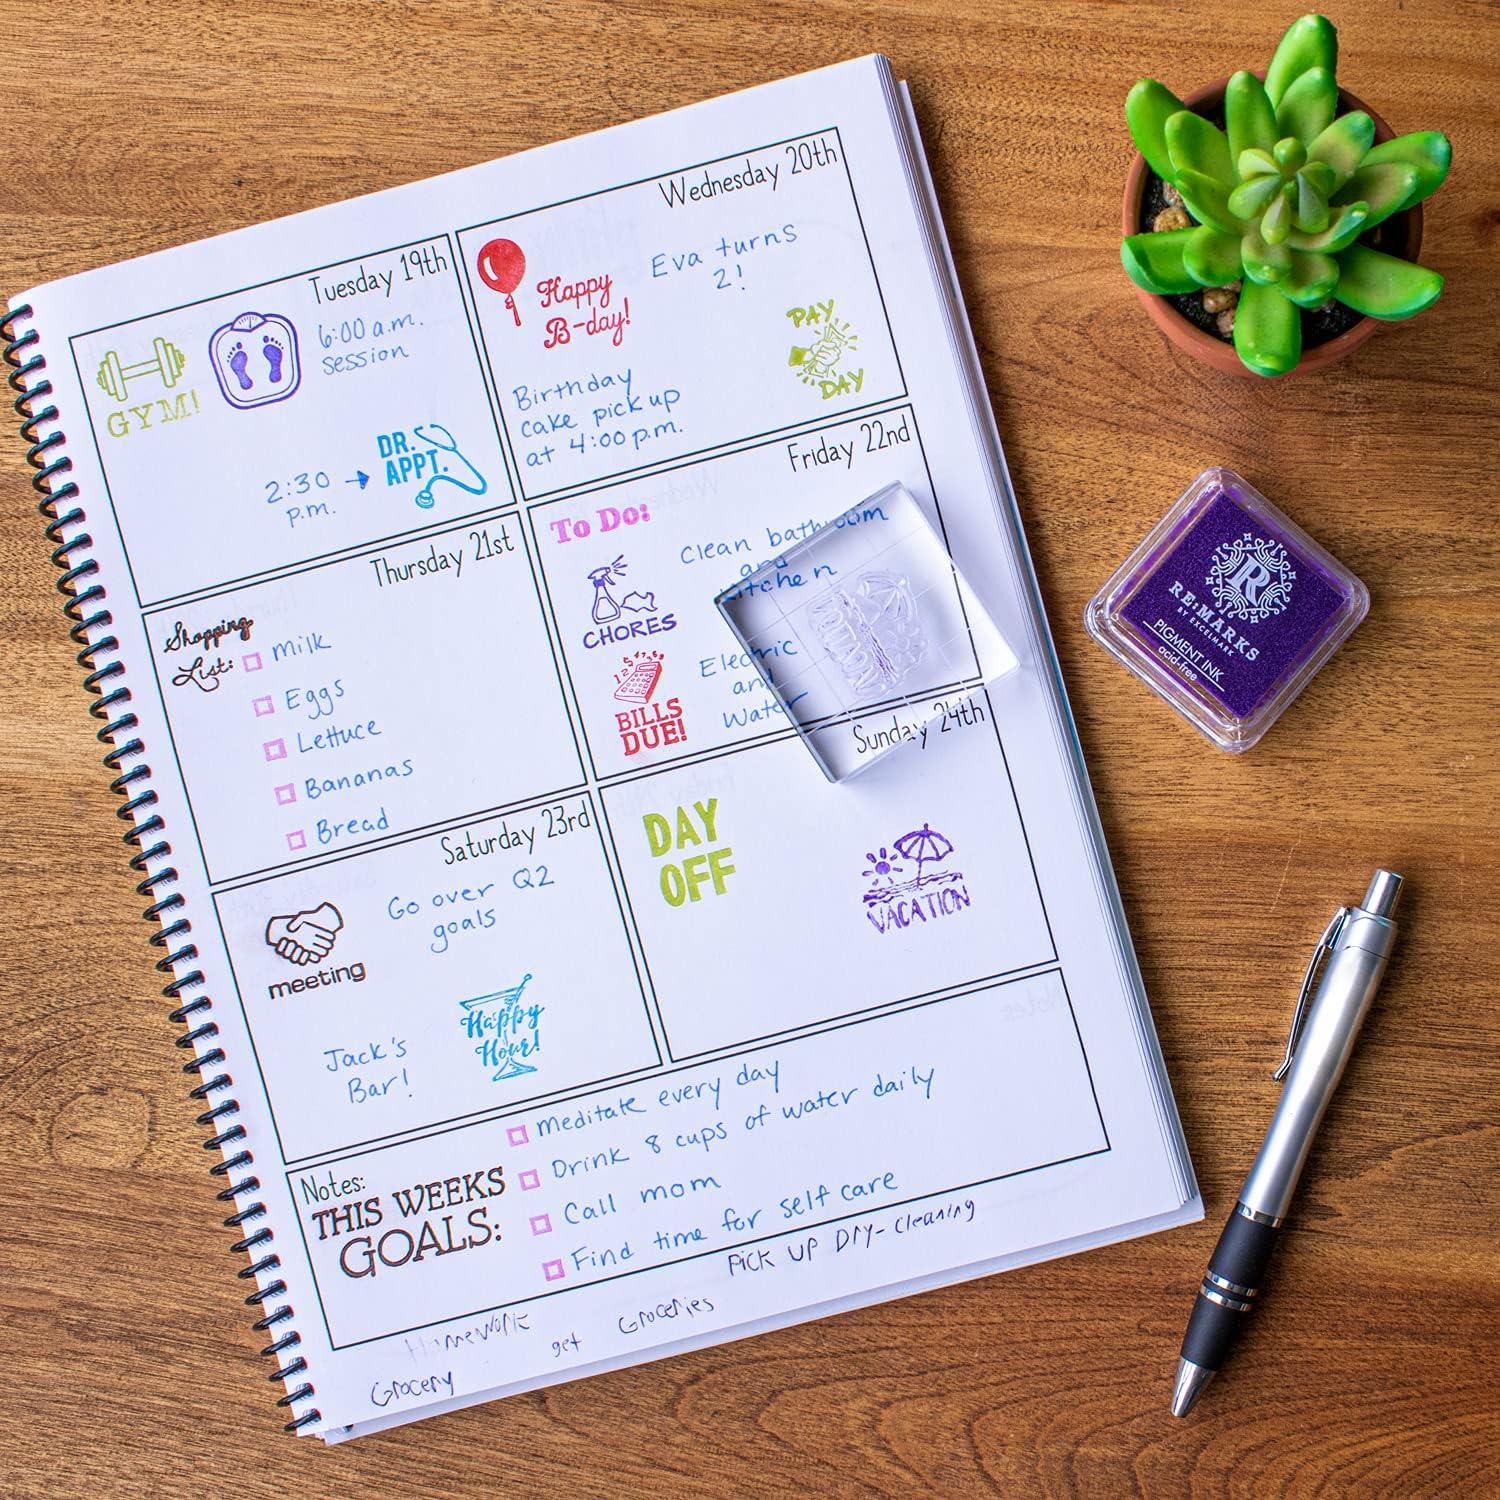 Tuesday 19th
GYM!
6:00 a.m.
session
2:30
p.m.
DR.
APPT.
Wednesday 20th
Happy
B-day!
Eva turns
2!
PAY
DAY
Birthday
cake pick up
at 4:00 p.m.
Thursday 21st
Shopping
List:
milk
Eggs
Lettuce
Bananas
Bread
Friday 22nd
To Do:
CHORES
Clean bathroom
and
kitchen
BILLS
DUE!
Electric
and
Water
Saturday 23rd
meeting
Go over Q2
goals
Jack's
Bar!
Happy
Hour!
Sunday 24th
DAY
OFF
VACATION
Notes:
THIS WEEKS
GOALS:
meditate every day
Drink 8 cups of water daily
Call mom
Find time for self care
Pick up Dry-cleaning
Homework
get Groceries
Grocery
R
RE:MARKS
BY EXCELMARK
PIGMENT INK
acid-free